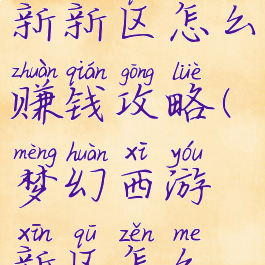 新新区怎么
zhuàn qián gōng lüè
赚钱攻略(
mèng huàn xī yóu
梦幻西游
xīn qū zěn me
新区怎么